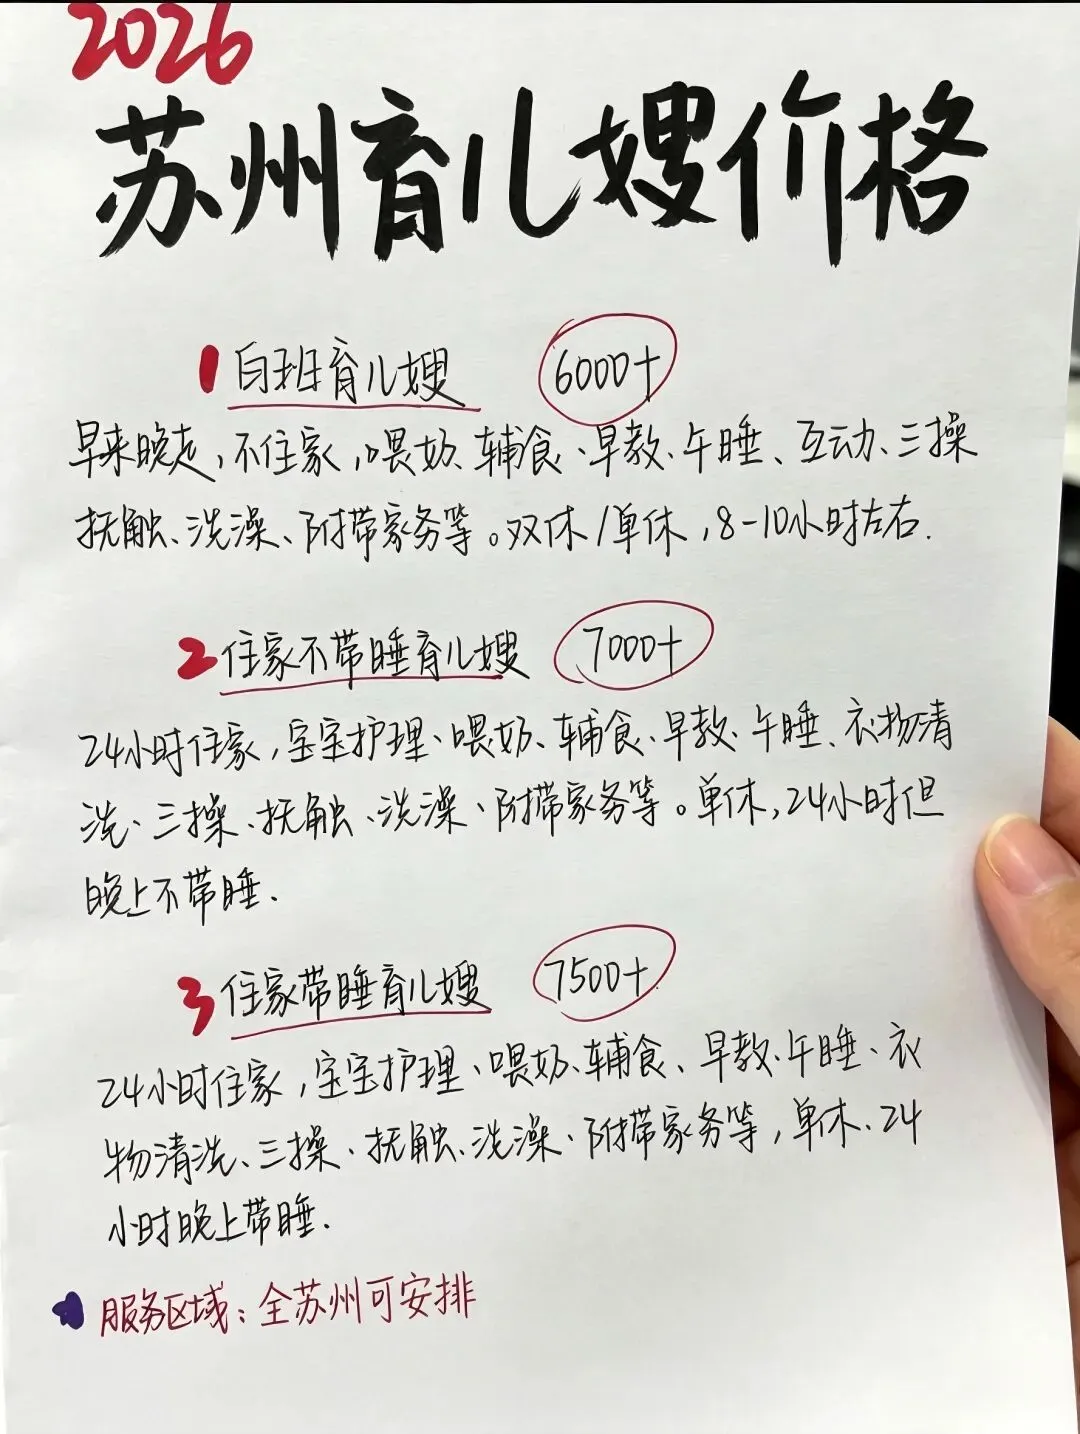 2026
苏州育儿嫂价格
1 白班育儿嫂 6000+
早来晚走,不住家,喂奶、辅食、早教、午睡、互动、三操
抚触、洗澡、附带家务等。双休/单休,8-10小时左右.
2 住家不带睡育儿嫂 7000+
24小时住家,宝宝护理、喂奶、辅食、早教、午睡、衣物清
洗、三操、抚触、洗澡、附带家务等。单休,24小时但
晚上不带睡.
3 住家带睡育儿嫂 7500+
24小时住家,宝宝护理、喂奶、辅食、早教、午睡、衣
物清洗、三操、抚触、洗澡、附带家务等,单休、24
小时晚上带睡.
服务区域:全苏州可安排